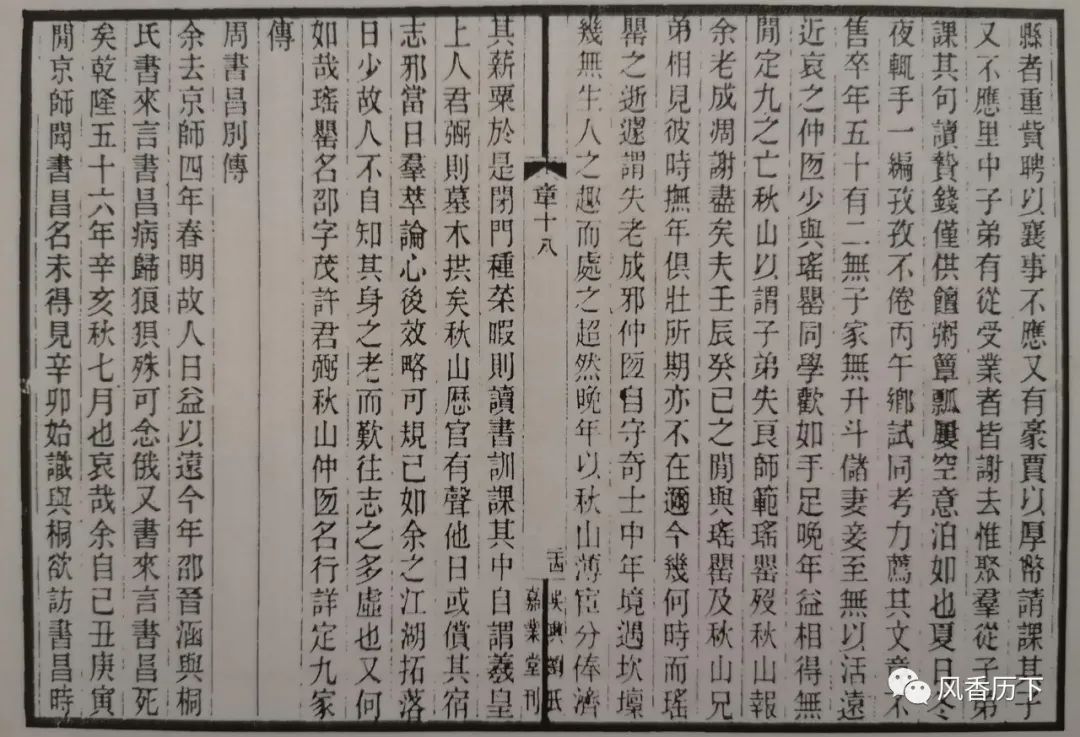 縣者重貲聘以襄事不應又有豪賈以厚幣請課其子
又不應里中子弟有從受業者皆謝去惟聚羣從子弟
課其句讀贄錢僅供饘粥簞瓢屢空意泊如也夏日冬
夜輒手一編孜孜不倦丙午鄉試同考力薦其文竟不
售卒年五十有二無子家無升斗儲妻妾至無以活遠
近哀之仲㔯少與瑤罌同學歡如手足晚年益相得無
閒定九之亡秋山以謂子弟失良師範瑤罌歿秋山報
余老成凋謝盡矣夫壬辰癸巳之閒與瑤罌及秋山兄
弟相見彼時撫年俱壯所期亦不在邇今幾何時而瑤
罌之逝遽謂失老成邪仲㔯自守奇士中年境遇坎壈
幾無生人之趣而處之超然晚年以秋山薄宦分俸濟
章十八
二四
吳興劉氏
嘉業堂刊
其薪粟於是閉門種菜暇則讀書訓課其中自謂羲皇
上人君弼則墓木拱矣秋山歷官有聲他日或償其宿
志邪當日羣萃論心後效略可規已如余之江湖拓落
日少故人不自知其身之老而歎往志之多虛也又何
如哉瑤罌名邵字茂許君弼秋山仲㔯名行詳定九家
傳
周書昌別傳
余去京師四年春明故人日益以遠今年邵晉涵與桐
氏書來言書昌病歸狼狽殊可念俄又書來言書昌死
矣乾隆五十六年辛亥秋七月也哀哉余自己丑庚寅
閒京師聞書昌名未得見辛卯始識與桐欲訪書昌時
风香历下